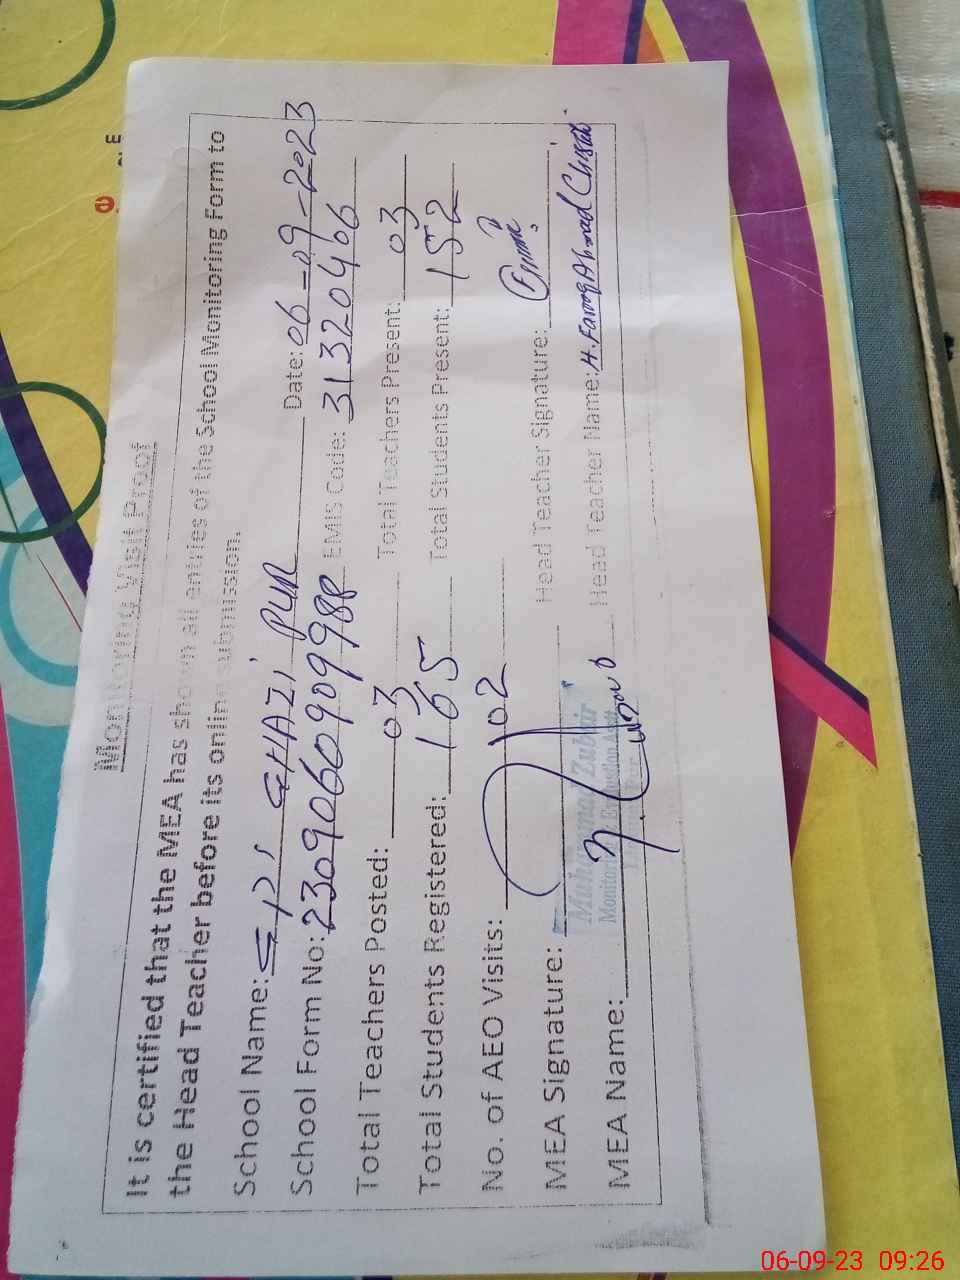 Monitoring Visit Proof
It is certified that the MEA has shown all entries of the School Monitoring Form to
the Head Teacher before its online submission.
School Name: GHAZI PUR Date: 06-09-2023
School Form No: EMIS Code: 31320406
Total Teachers Posted: 03 Total Teachers Present: 03
Total Students Registered: 165 Total Students Present: 152
No. of AEO Visits: 02
MEA Signature: Head Teacher Signature:
Zubair
Monitoring
MEA Name: Head Teacher Name: H. Farooq Ahmad
06-09-23 09:26